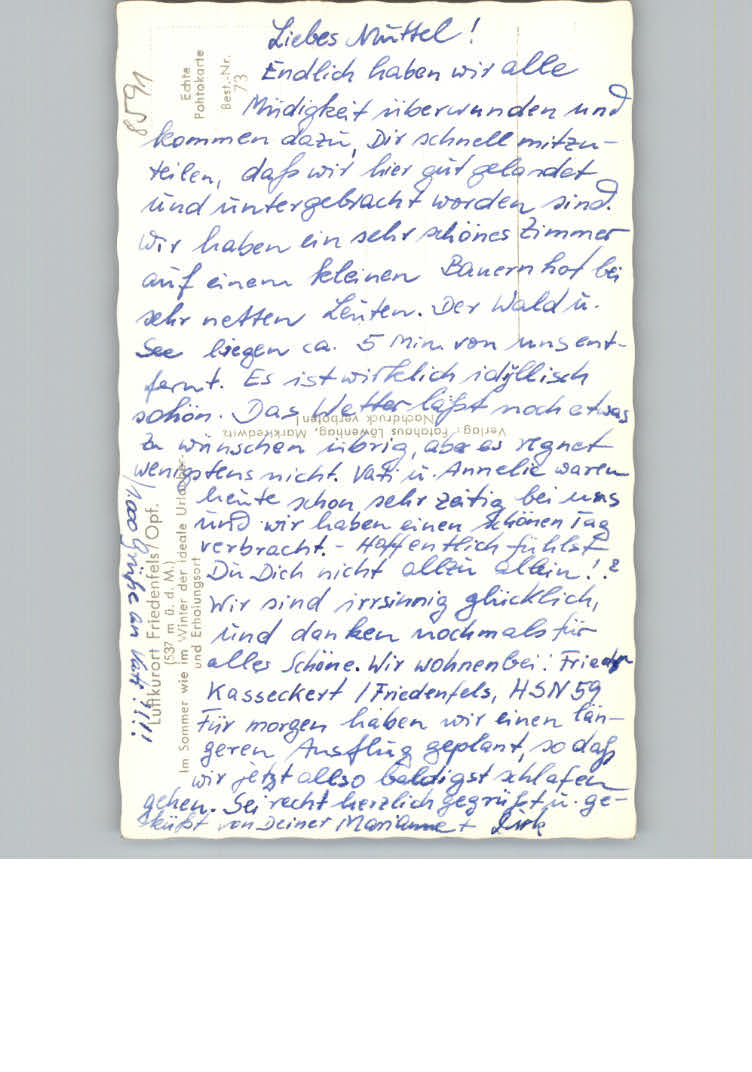 Liebes Muttel!
Endlich haben wir alle
Müdigkeit überwunden und
kommen dazu, Dir schnell mitzu-
teilen, daß wir hier gut gelandet
und untergebracht worden sind.
Wir haben ein sehr schönes Zimmer
auf einem kleinen Bauernhof bei
sehr netten Leuten. Der Wald u.
See liegen ca. 5 Min. von uns ent-
fernt. Es ist wirklich idyllisch
schön. Das Wetter läßt noch etwas
zu wünschen übrig, aber es regnet
wenigstens nicht. Vati u. Annelie waren
heute schon sehr zeitig bei uns
und wir haben einen schönen Tag
verbracht. - Hoffentlich fühlst
Du Dich nicht allzu allein!?
Wir sind irrsinnig glücklich,
und danken nochmals für
alles Schöne. Wir wohnen bei: Friedr
Kasseckert / Friedenfels, HSN 59
Für morgen haben wir einen län-
geren Ausflug geplant, so daß
wir jetzt allso baldigst schlafen
gehen. Sei recht herzlich gegrüßt u. ge-
küßt von Deiner Marianne +
1000 Grüße an Vati!!!!
8591
Echte
Photokarte
Best.-Nr.
73
Luftkurort Friedenfels/Opf.
(537 m ü. d. M.)
Im Sommer wie im Winter der ideale Urlaubs-
und Erholungsort
Verlag: Fotohaus Löwenhag, Marktredwitz
Nachdruck verboten!